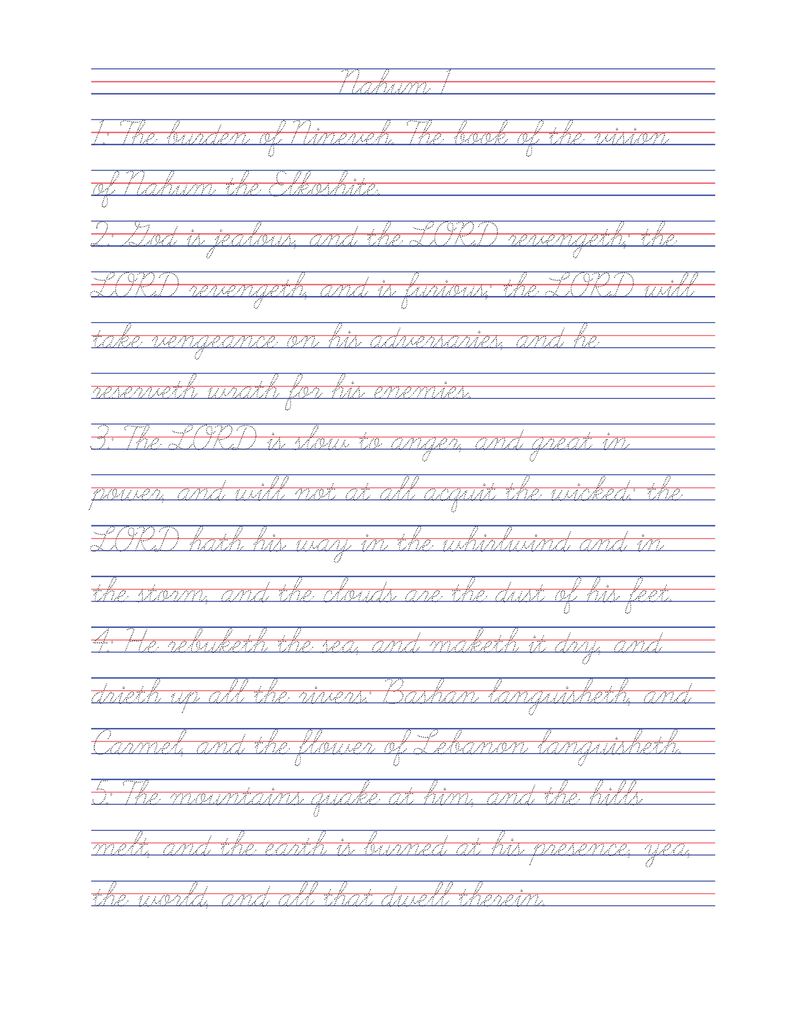 Nahum 1
1: The burden of Nineveh. The book of the vision
of Nahum the Elkoshite.
2: God is jealous, and the LORD revengeth; the
LORD revengeth, and is furious; the LORD will
take vengeance on his adversaries, and he
reserveth wrath for his enemies.
3: The LORD is slow to anger, and great in
power, and will not at all acquit the wicked: the
LORD hath his way in the whirlwind and in
the storm, and the clouds are the dust of his feet.
4: He rebuketh the sea, and maketh it dry, and
drieth up all the rivers: Bashan languisheth, and
Carmel, and the flower of Lebanon languisheth.
5: The mountains quake at him, and the hills
melt, and the earth is burned at his presence, yea,
the world, and all that dwell therein.